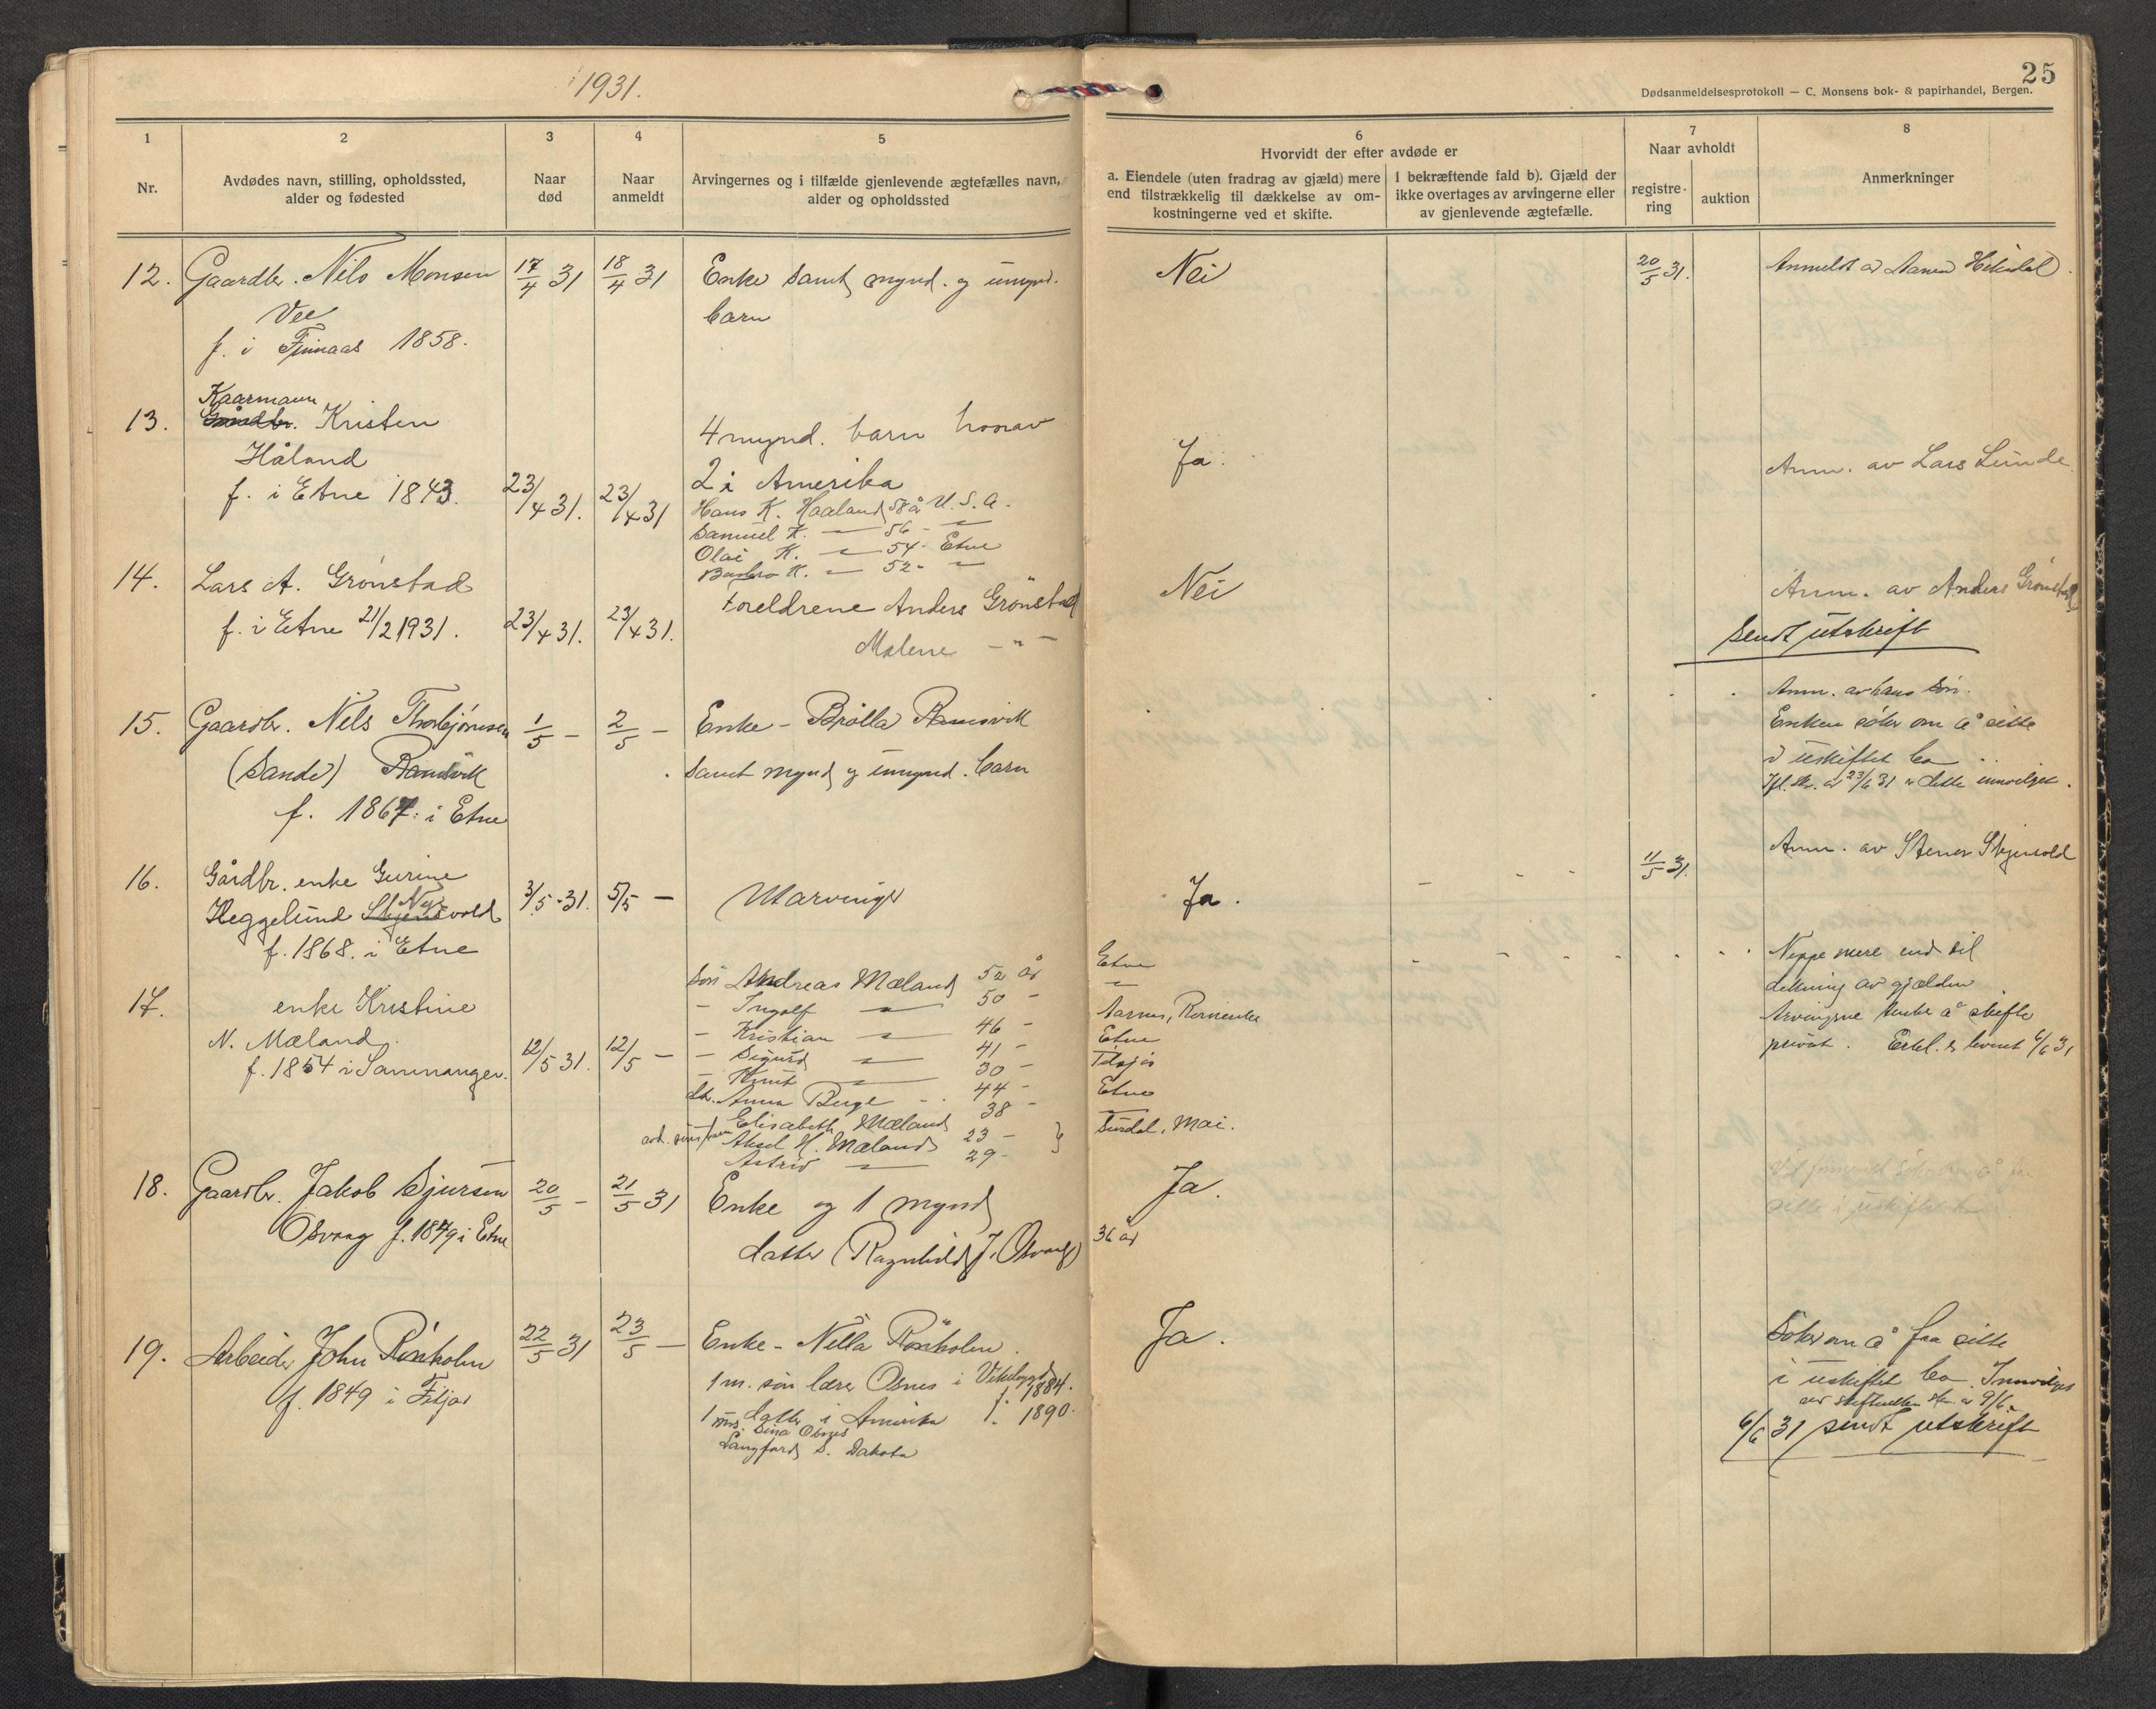 1931.
25
Dødsanmeldelsesprotokoll — C. Monsens bok- & papirhandel, Bergen.
1
2
3
4
5
Nr.
Avdødes navn, stilling, opholdssted,
alder og fødested
Naar
død
Naar
anmeldt
Arvingernes og i tilfælde gjenlevende ægtefælles navn,
alder og opholdssted
6
Hvorvidt der efter avdøde er
a. Eiendele (uten fradrag av gjæld) mere
end tilstrækkelig til dækkelse av om-
kostningerne ved et skifte.
I bekræftende fald b). Gjæld der
ikke overtages av arvingerne eller
av gjenlevende ægtefælle.
7
Naar avholdt
registre-
ring
auktion
8
Anmerkninger
12. Gaardbr. Nils Monsen
Vee
f. i Finnaas 1858.
17/4 31
18/4 31
Enke samt mynd. og umynd.
barn
Nei
20/5 31.
Anmeldt av
13. Kaarmann
Gårdbr. Kristen
Håland
f. i Etne 1843.
23/4 31.
23/4 31
4 mynd. barn hvorav
2 i Amerika
Hans K. Haaland 58 å U.S.A.
Samuel K. — 56 -
Olai K. — 54 - Etne
K. — 52 -
Ja.
Anm. av Lars Lunde
14. Lars A. Grønstad
f. i Etne 21/2 1931.
23/4 31.
23/4 31.
Foreldrene Anders Grönstad
Malene — " —
Nei
Anm. av Anders Grönstad
sendt utskrift
15. Gaardbr. Nils Thorbjørnsen
(Sande) Ramsvik
f. 1867 i Etne
1/5 —
2/5 —
Enke - Brølla Ramsvik
samt mynd og umynd. barn
Anm. av hans søn.
Enken søker om å sitte
i uskiftet bo
Ifl. skr. av 23/6 31 er dette innvilget.
16. Gårdbr. enke Gurine
Heggelund Skjensvold
Nes
f. 1868. i Etne
3/5 - 31.
5/5 —
Utarvinger
Ja.
11/5 31.
Anm. av Stener Skjensvold
17. enke Kristine
N. Mæland.
f. 1854 i Sammanger.
12/5 31.
12/5 —
søn Andreas Mæland 52 år Etne
— Ingolf — 50 —
— Kristian — 46 — Aarnes,
— Sigurd — 41 — Etne
— Knut — 30 —
dt. Anna Berge 44 — Etne
Elisabeth Mæland 38 —
Aksel H. Mæland 23 —
Astrid — 29 —
Neppe mere end til
dekning av gjælden
Arvingene tenke å skifte
privat. Erkl. er levert 6/6 31
18. Gaardbr. Jakob Sjursen
Osvaag f. 1849 i Etne
20/5 —
21/5 31
Enke og 1 mynd
datter (Ragnhild J. Osvaag) 36 år
Ja.
sitte i uskiftet bo
19. Arbeider John Rönholm
f. 1849 i Fitjar
22/5 31
23/5 —
Enke - Nilla Rönholm.
1 m. søn lærer Osnes i Vikebygd f. 1884.
1 datter i Amerika f. 1890.
Sina Osnes
Langford S. Dakota
Ja.
Søker om å faa sitte
i uskiftet bo. Innvilget
ved skr. av 9/6.
6/6 31 sendt utskrift